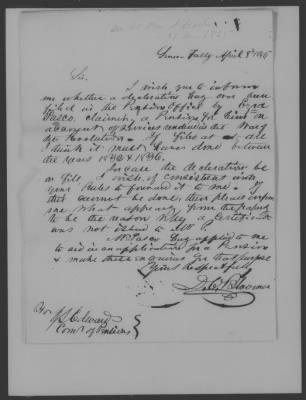 Seneca Falls April 8th 1845
Sir.
I wish you to inform
me whether a declaration has ever been
filed in the Pension Office by Ezra
Pasco, claiming a Pension for him on
account of services rendered in the War of
the Revolution. If filed at all
I think it must have been done between
the years 1832 & 1836.
In case the declaration be
on file, I wish, if consistent with
your Rules to forward it to me. If
this cannot be done, then please inform
me what appears from the papers
to be the reason why a Certificate
was not issued to him.
Mr Pasco has applied to me
to aid in an application for a Pension
& make these enquiries for that purpose
Yours Respectfully
To
J L Edwards
Comr of Pensions